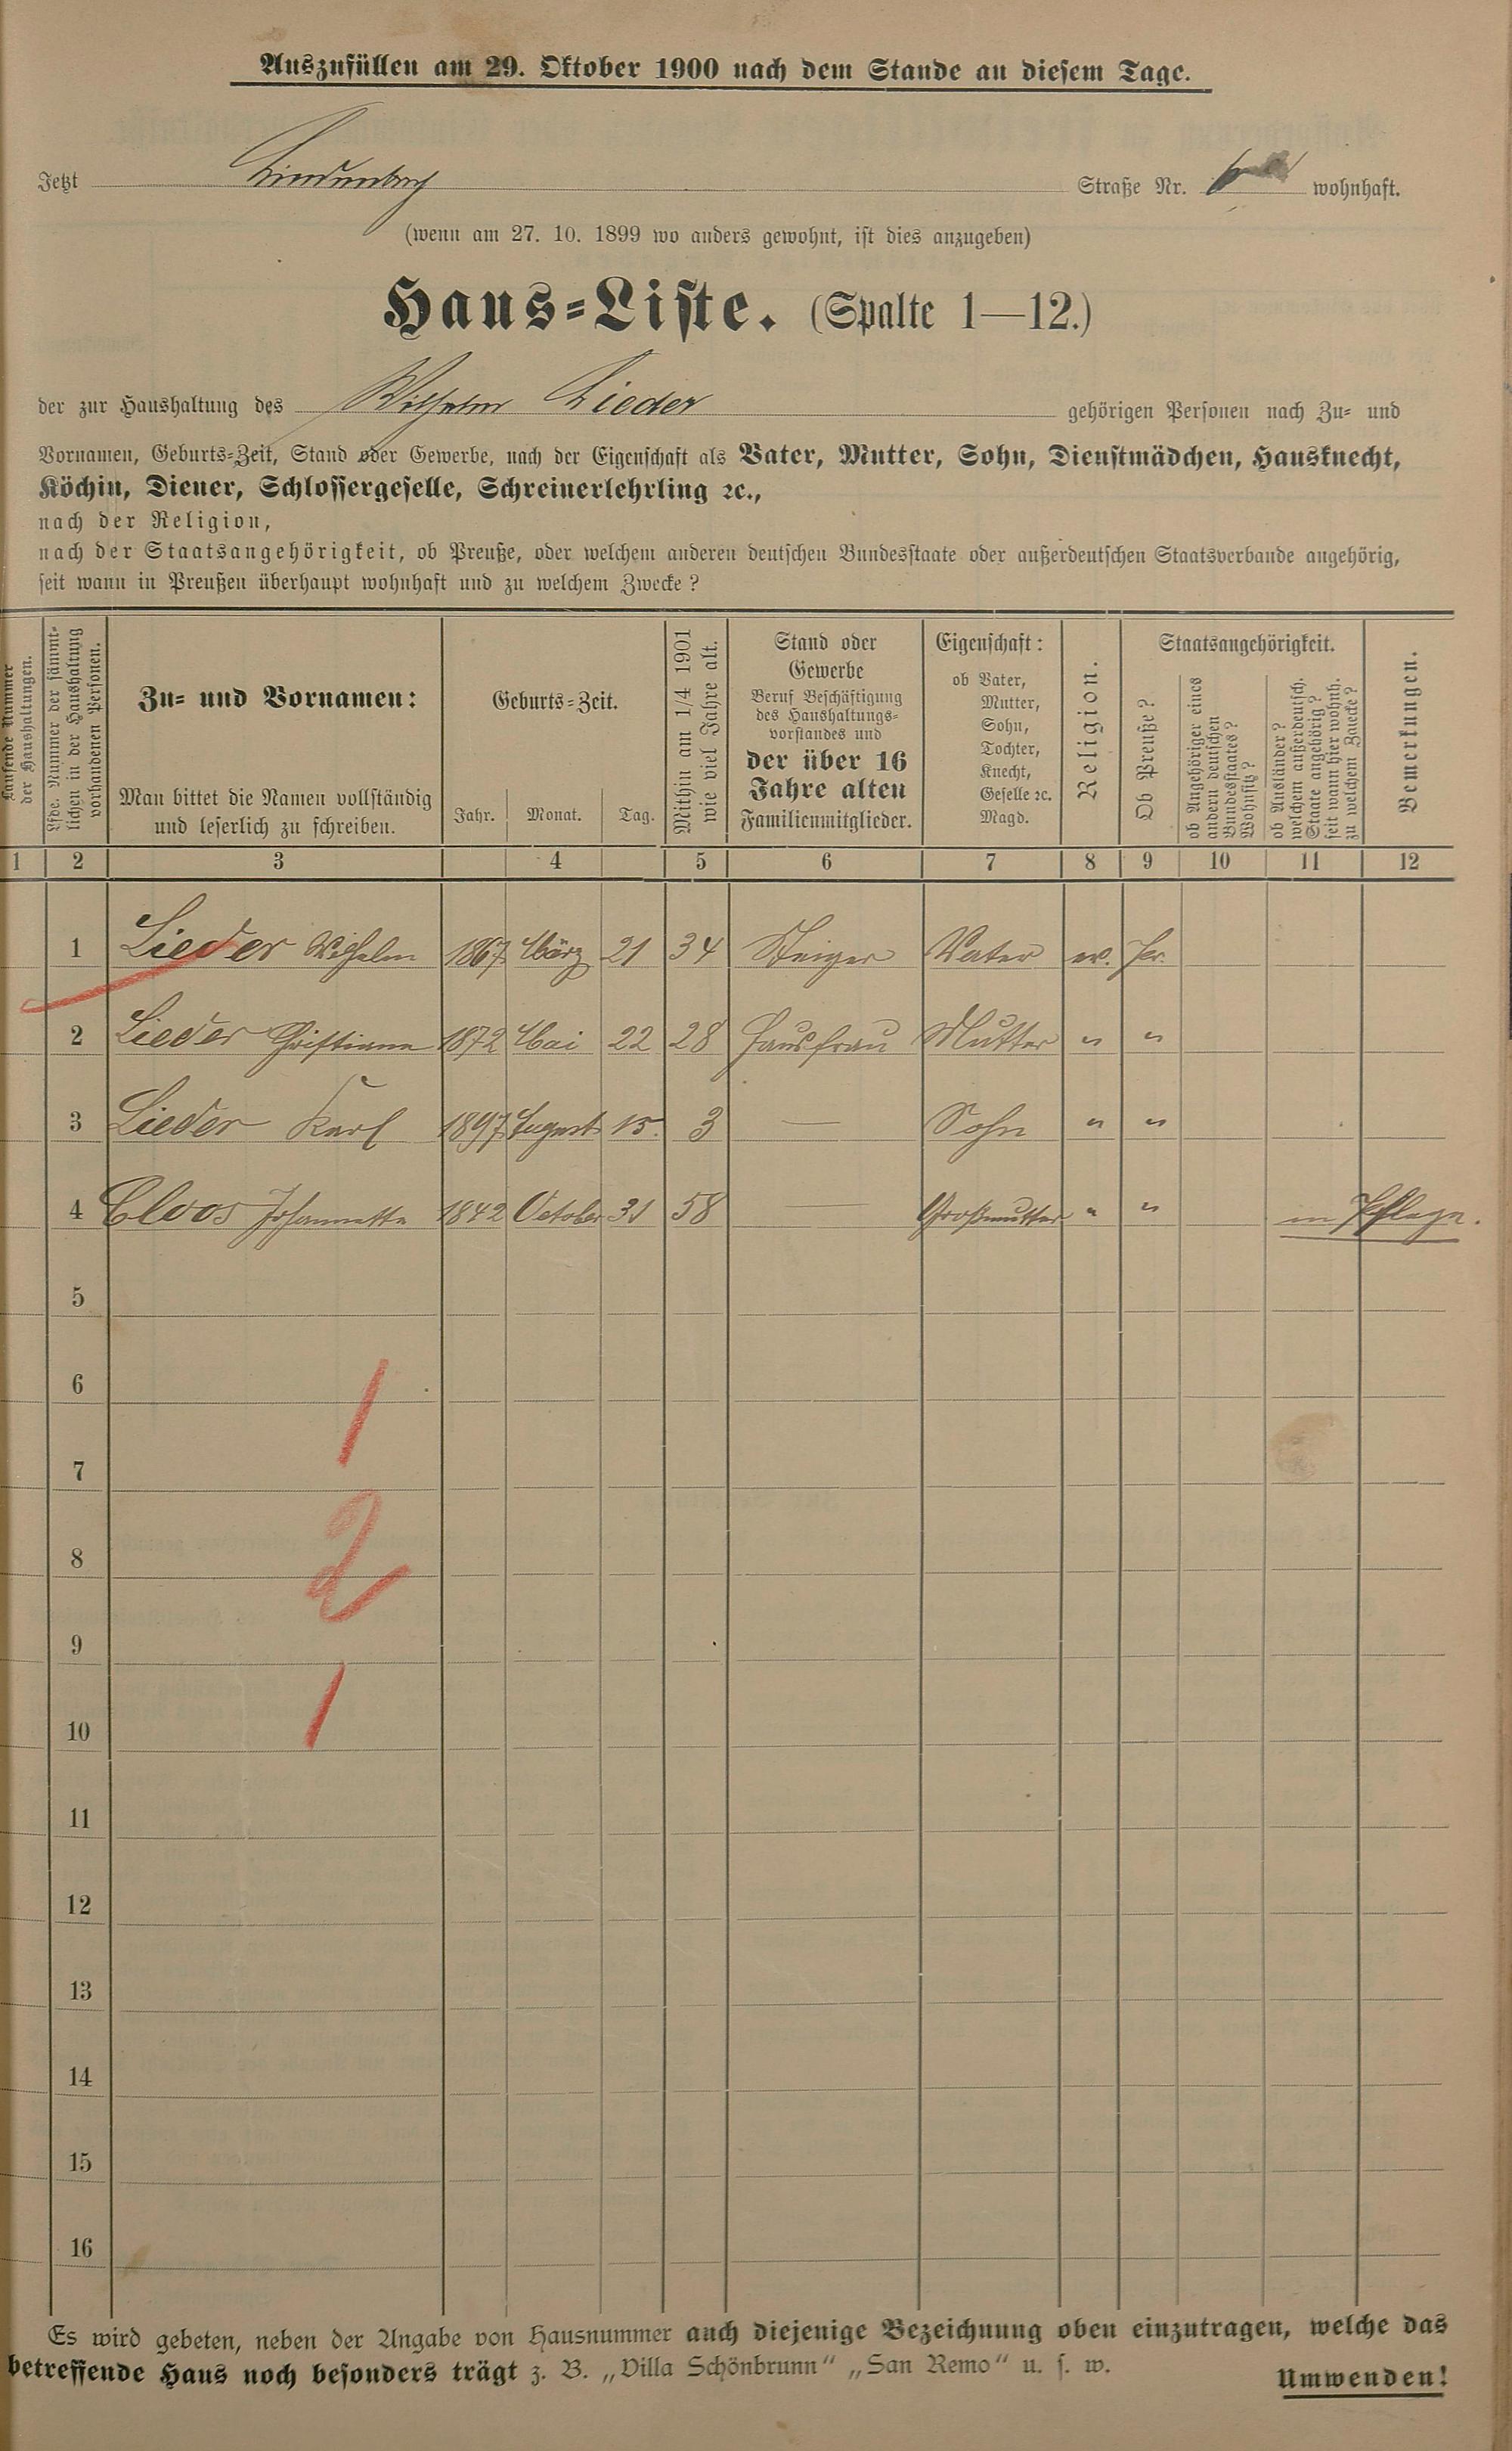 Auszufüllen am 29. Oktober 1900 nach dem Stande an diesem Tage.
Jetzt Lindenbach Straße Nr. 6 wohnhaft.
(wenn am 27. 10. 1899 wo anders gewohnt, ist dies anzugeben)
Haus-Liste. (Spalte 1—12.)
der zur Haushaltung des Wilhelm Lieder gehörigen Personen nach Zu- und
Vornamen, Geburts-Zeit, Stand oder Gewerbe, nach der Eigenschaft als Vater, Mutter, Sohn, Dienstmädchen, Hausknecht,
Köchin, Diener, Schlossergeselle, Schreinerlehrling ꝛc.,
nach der Religion,
nach der Staatsangehörigkeit, ob Preuße, oder welchem anderen deutschen Bundesstaate oder außerdeutschen Staatsverbande angehörig,
seit wann in Preußen überhaupt wohnhaft und zu welchem Zwecke?
Laufende Nummer
der Haushaltungen.
Lfde. Nummer der sämmt-
lichen in der Haushaltung
vorhandenen Personen.
Zu- und Vornamen:
Man bittet die Namen vollständig
und leserlich zu schreiben.
Geburts-Zeit.
Jahr. Monat. Tag.
Mithin am 1/4 1901
wie viel Jahre alt.
Stand oder
Gewerbe
Beruf Beschäftigung
des Haushaltungs-
vorstandes und
der über 16
Jahre alten
Familienmitglieder.
Eigenschaft:
ob Vater,
Mutter,
Sohn,
Tochter,
Knecht,
Geselle ꝛc.
Magd.
Religion.
Staatsangehörigkeit.
Ob Preuße?
ob Angehöriger eines
andern deutschen
Bundesstaates?
Wohnsitz?
ob Ausländer?
welchem außerdeutsch.
Staate angehörig?
seit wann hier wohnh.
zu welchem Zwecke?
Bemerkungen.
1 2 3 4 5 6 7 8 9 10 11 12
1 Lieder Wilhelm 1867 März 21 34 Steiger Vater ev. Pr.
2 Lieder Christiane 1872 Mai 22 28 Hausfrau Mutter " "
3 Lieder Karl 1897 August 15. 3 — Sohn " "
4 Cloos Johannette 1842 October 31 58 — Großmutter " " in Pflege.
5
6
1
7
8
2
9
10
1
11
12
13
14
15
16
Es wird gebeten, neben der Angabe von Hausnummer auch diejenige Bezeichnung oben einzutragen, welche das
betreffende Haus noch besonders trägt z. B. „Villa Schönbrunn" „San Remo" u. s. w.
Umwenden!